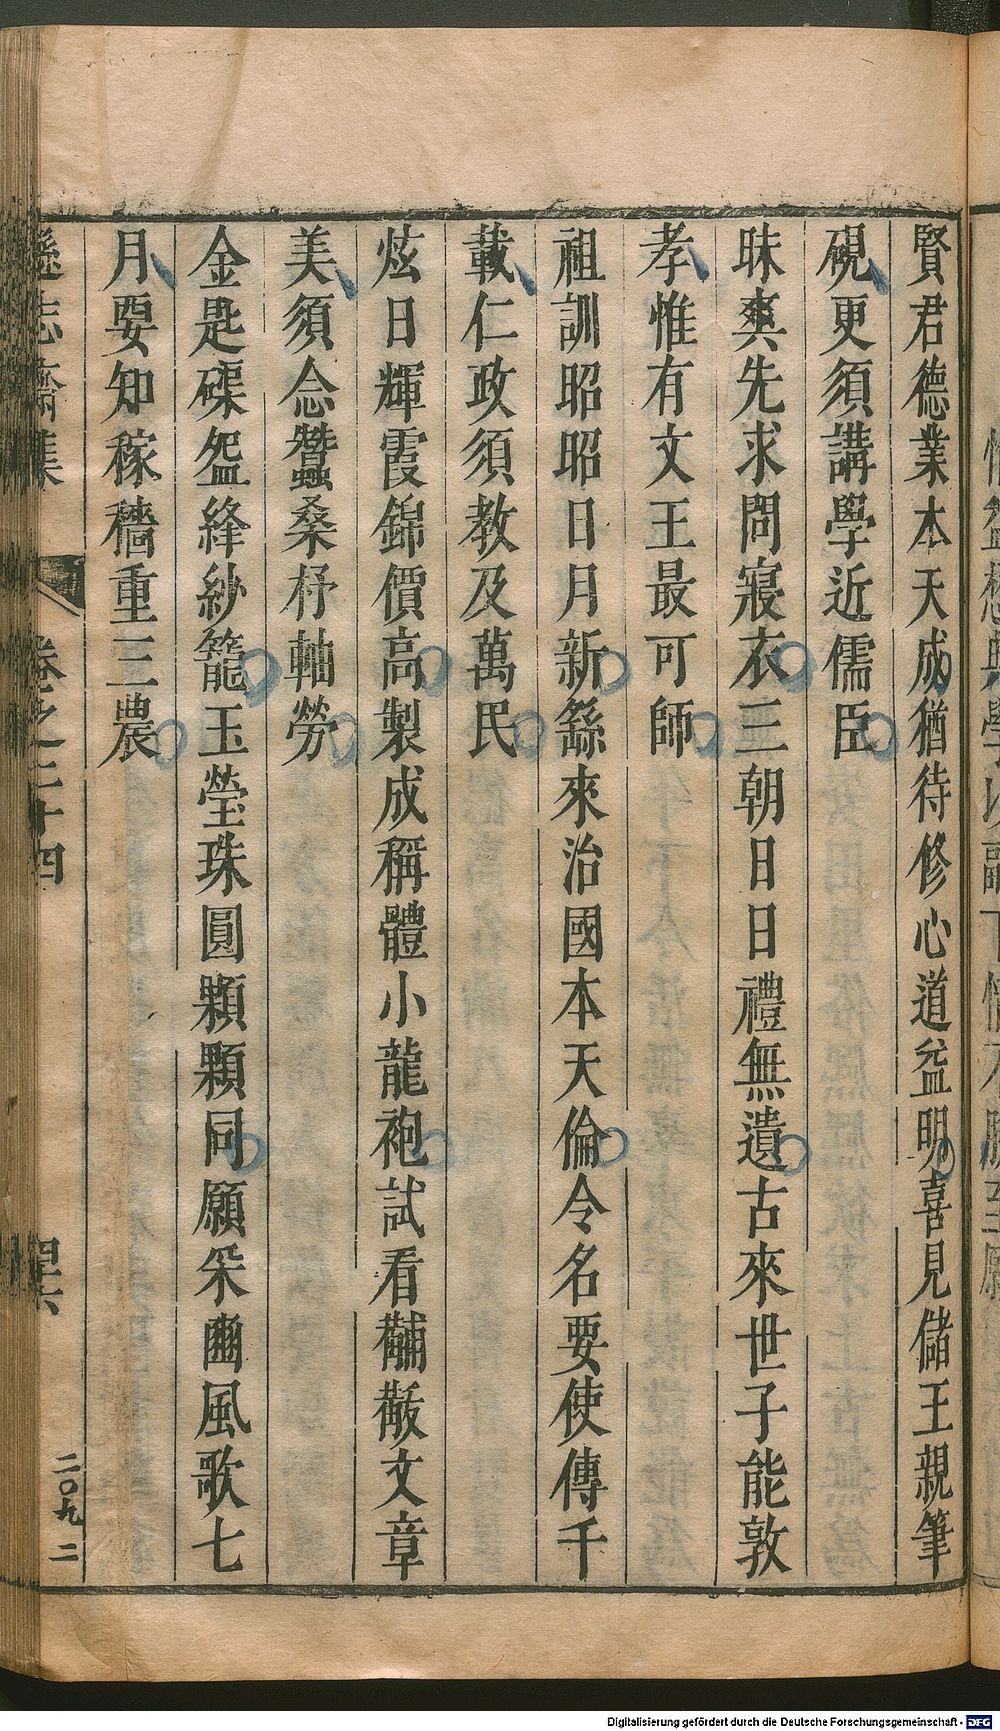 賢君德業本天成猶待修心道益明喜見儲王親筆
硯更須講學近儒臣
昧爽先求問寢衣三朝日日禮無遺古來世子能敦
孝惟有文王最可師
祖訓昭昭日月新繇來治國本天倫令名要使傳千
載仁政須教及萬民
炫日輝霞錦價高製成稱體小龍袍試看黼黻文章
美須念蠶桑杼軸勞
金匙磲盌絳紗籠玉瑩珠圓顆顆同願采豳風歌七
月要知稼穡重三農
遜志齋集
卷之二十四
四十六
二〇九二
Digitalisierung gefördert durch die Deutsche Forschungsgemeinschaft - DFG